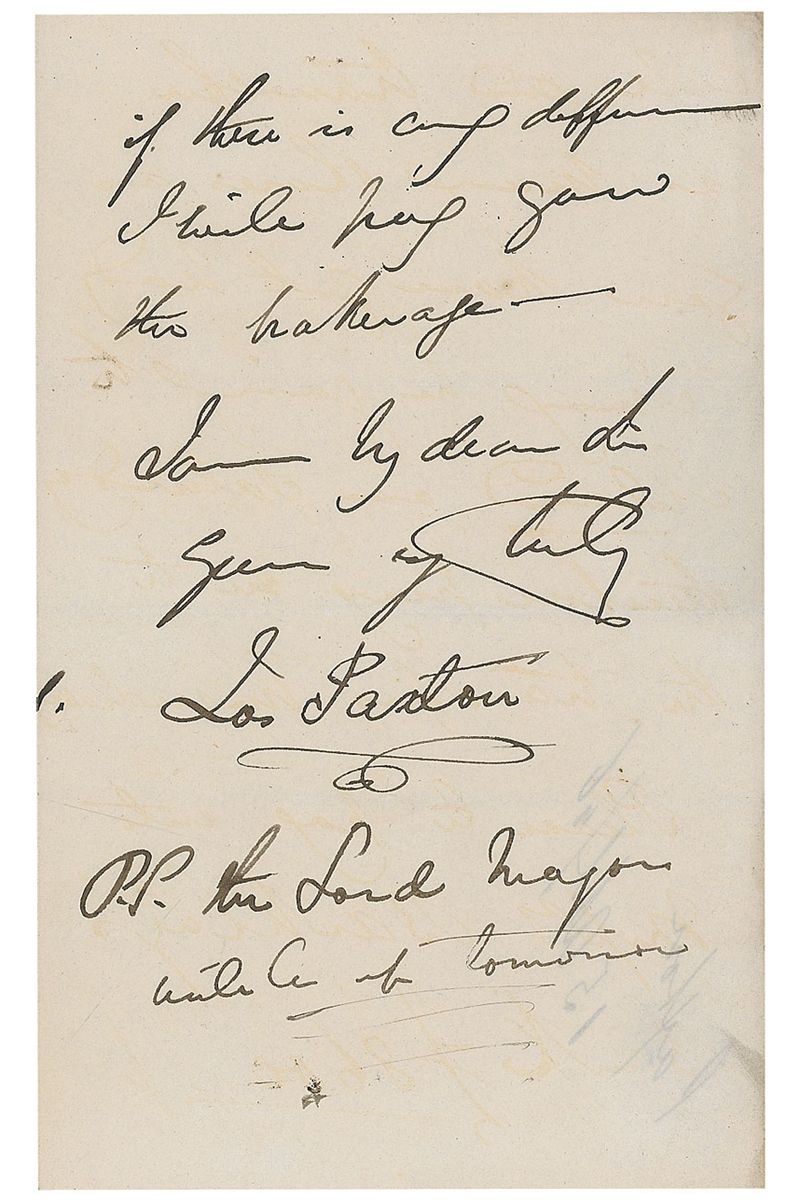 if there is any difference
I will pay you
the brokerage —
I am My dear Sir
yours vy truly
Jos Paxton
P.S. the Lord Mayor
will be up tomorrow